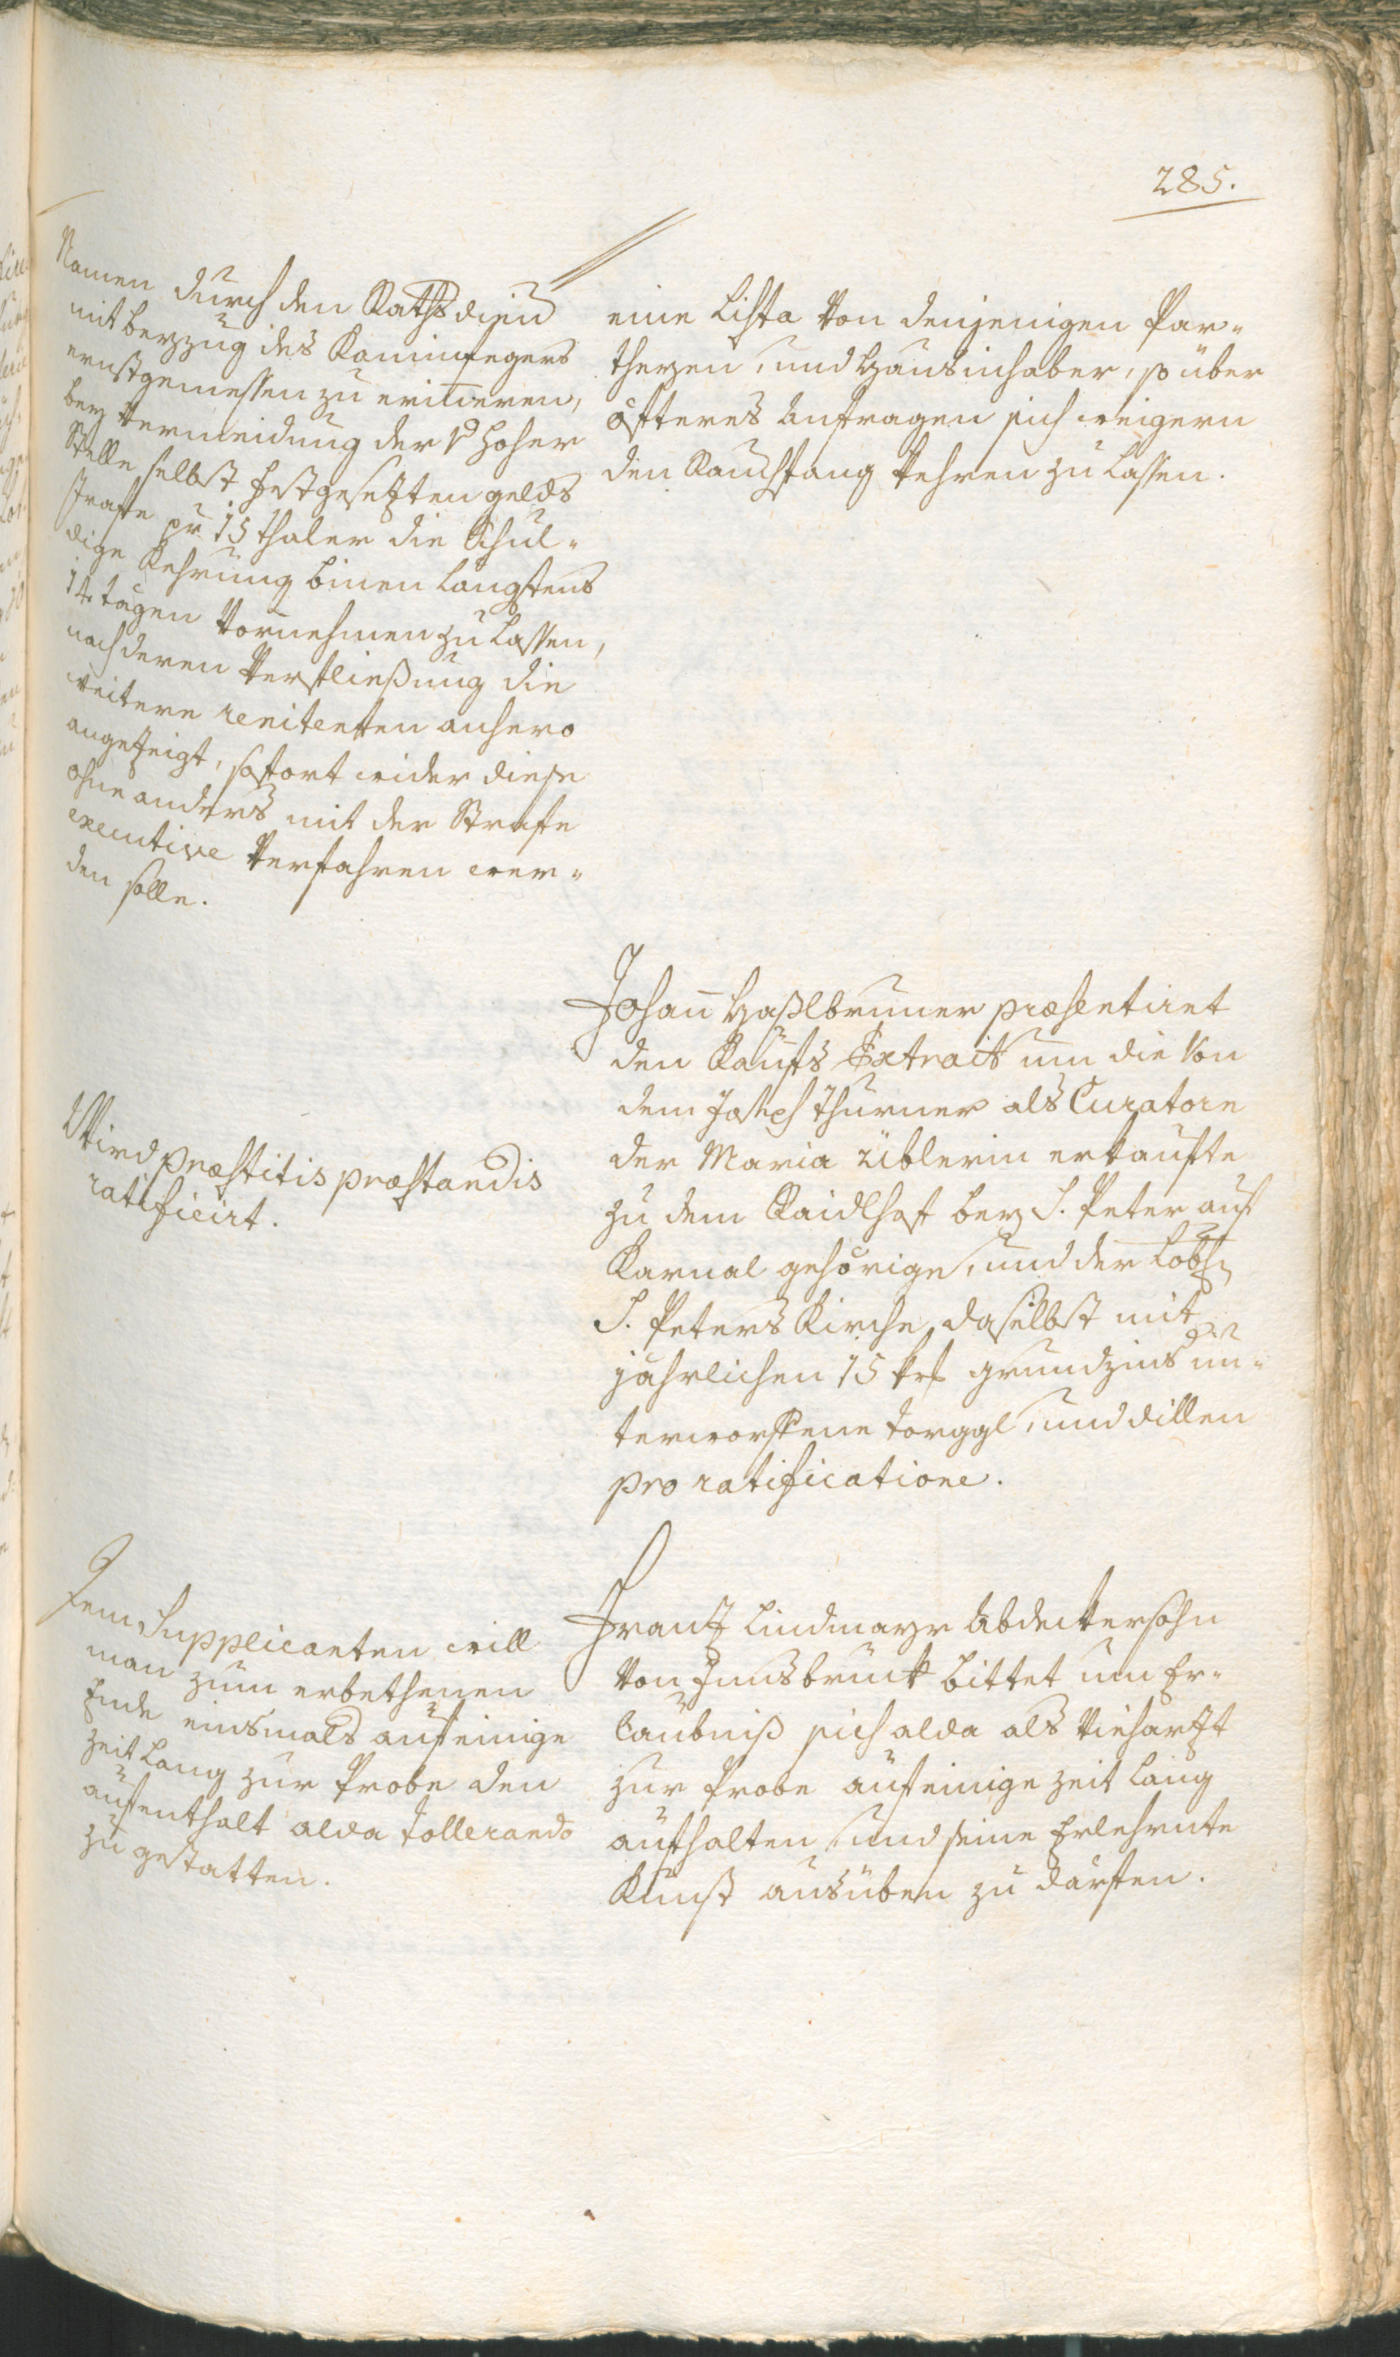 285.
Namen durch den Rathsdien̄
mit beyzug des Kaminfegers
ernstgemessen zu erinneren,
bey vermeidung der vō hoher
Stelle selbst festgesezten gelds
straffe pr 15 thaler die Schul-
dige Kehrung binen längstens
14 tägen vornehmen zu lassen,
nach deren Verfließung die
weitere renitenten anhero
angezeigt, sofort wider diese
ohne anders mit der Straffe
executive verfahren wer-
den solle.
eine Lista von denjenigen Par-
theyen, und Hausinhaber, so über
öfteres Anfragen sich weigern
den Rauchfang kehren zu lassen.
Johann Haßlbruner præsentiret
den Kaufs Extract um die von
dem Joseph Thurner als Curatore
der Maria Üblerin erkaufte
zu dem Raidlhof bey S. Peter auf
Karnal gehörige, und der Löbl.
S. Peters Kirche daselbst mit
jährlichen 15 kr grundzins un-
terworffene torggl, und dillen
pro ratificatione.
Wird præstitis præstandis
ratificirt.
Frantz Lindmayr Abdeckersohn
von Innsbruck bittet um Er-
laubniß sich alda als Vieharzt
zur Probe auf einige zeit lang
aufhalten, und seine Erlehrnte
Kunst ausüben zu därfen.
Dem Supplicanten will
man zum erbethenen
Ende einsmals auf einige
zeit lang zur Probe den
aufenthalt alda tollerando
zu gestatten.